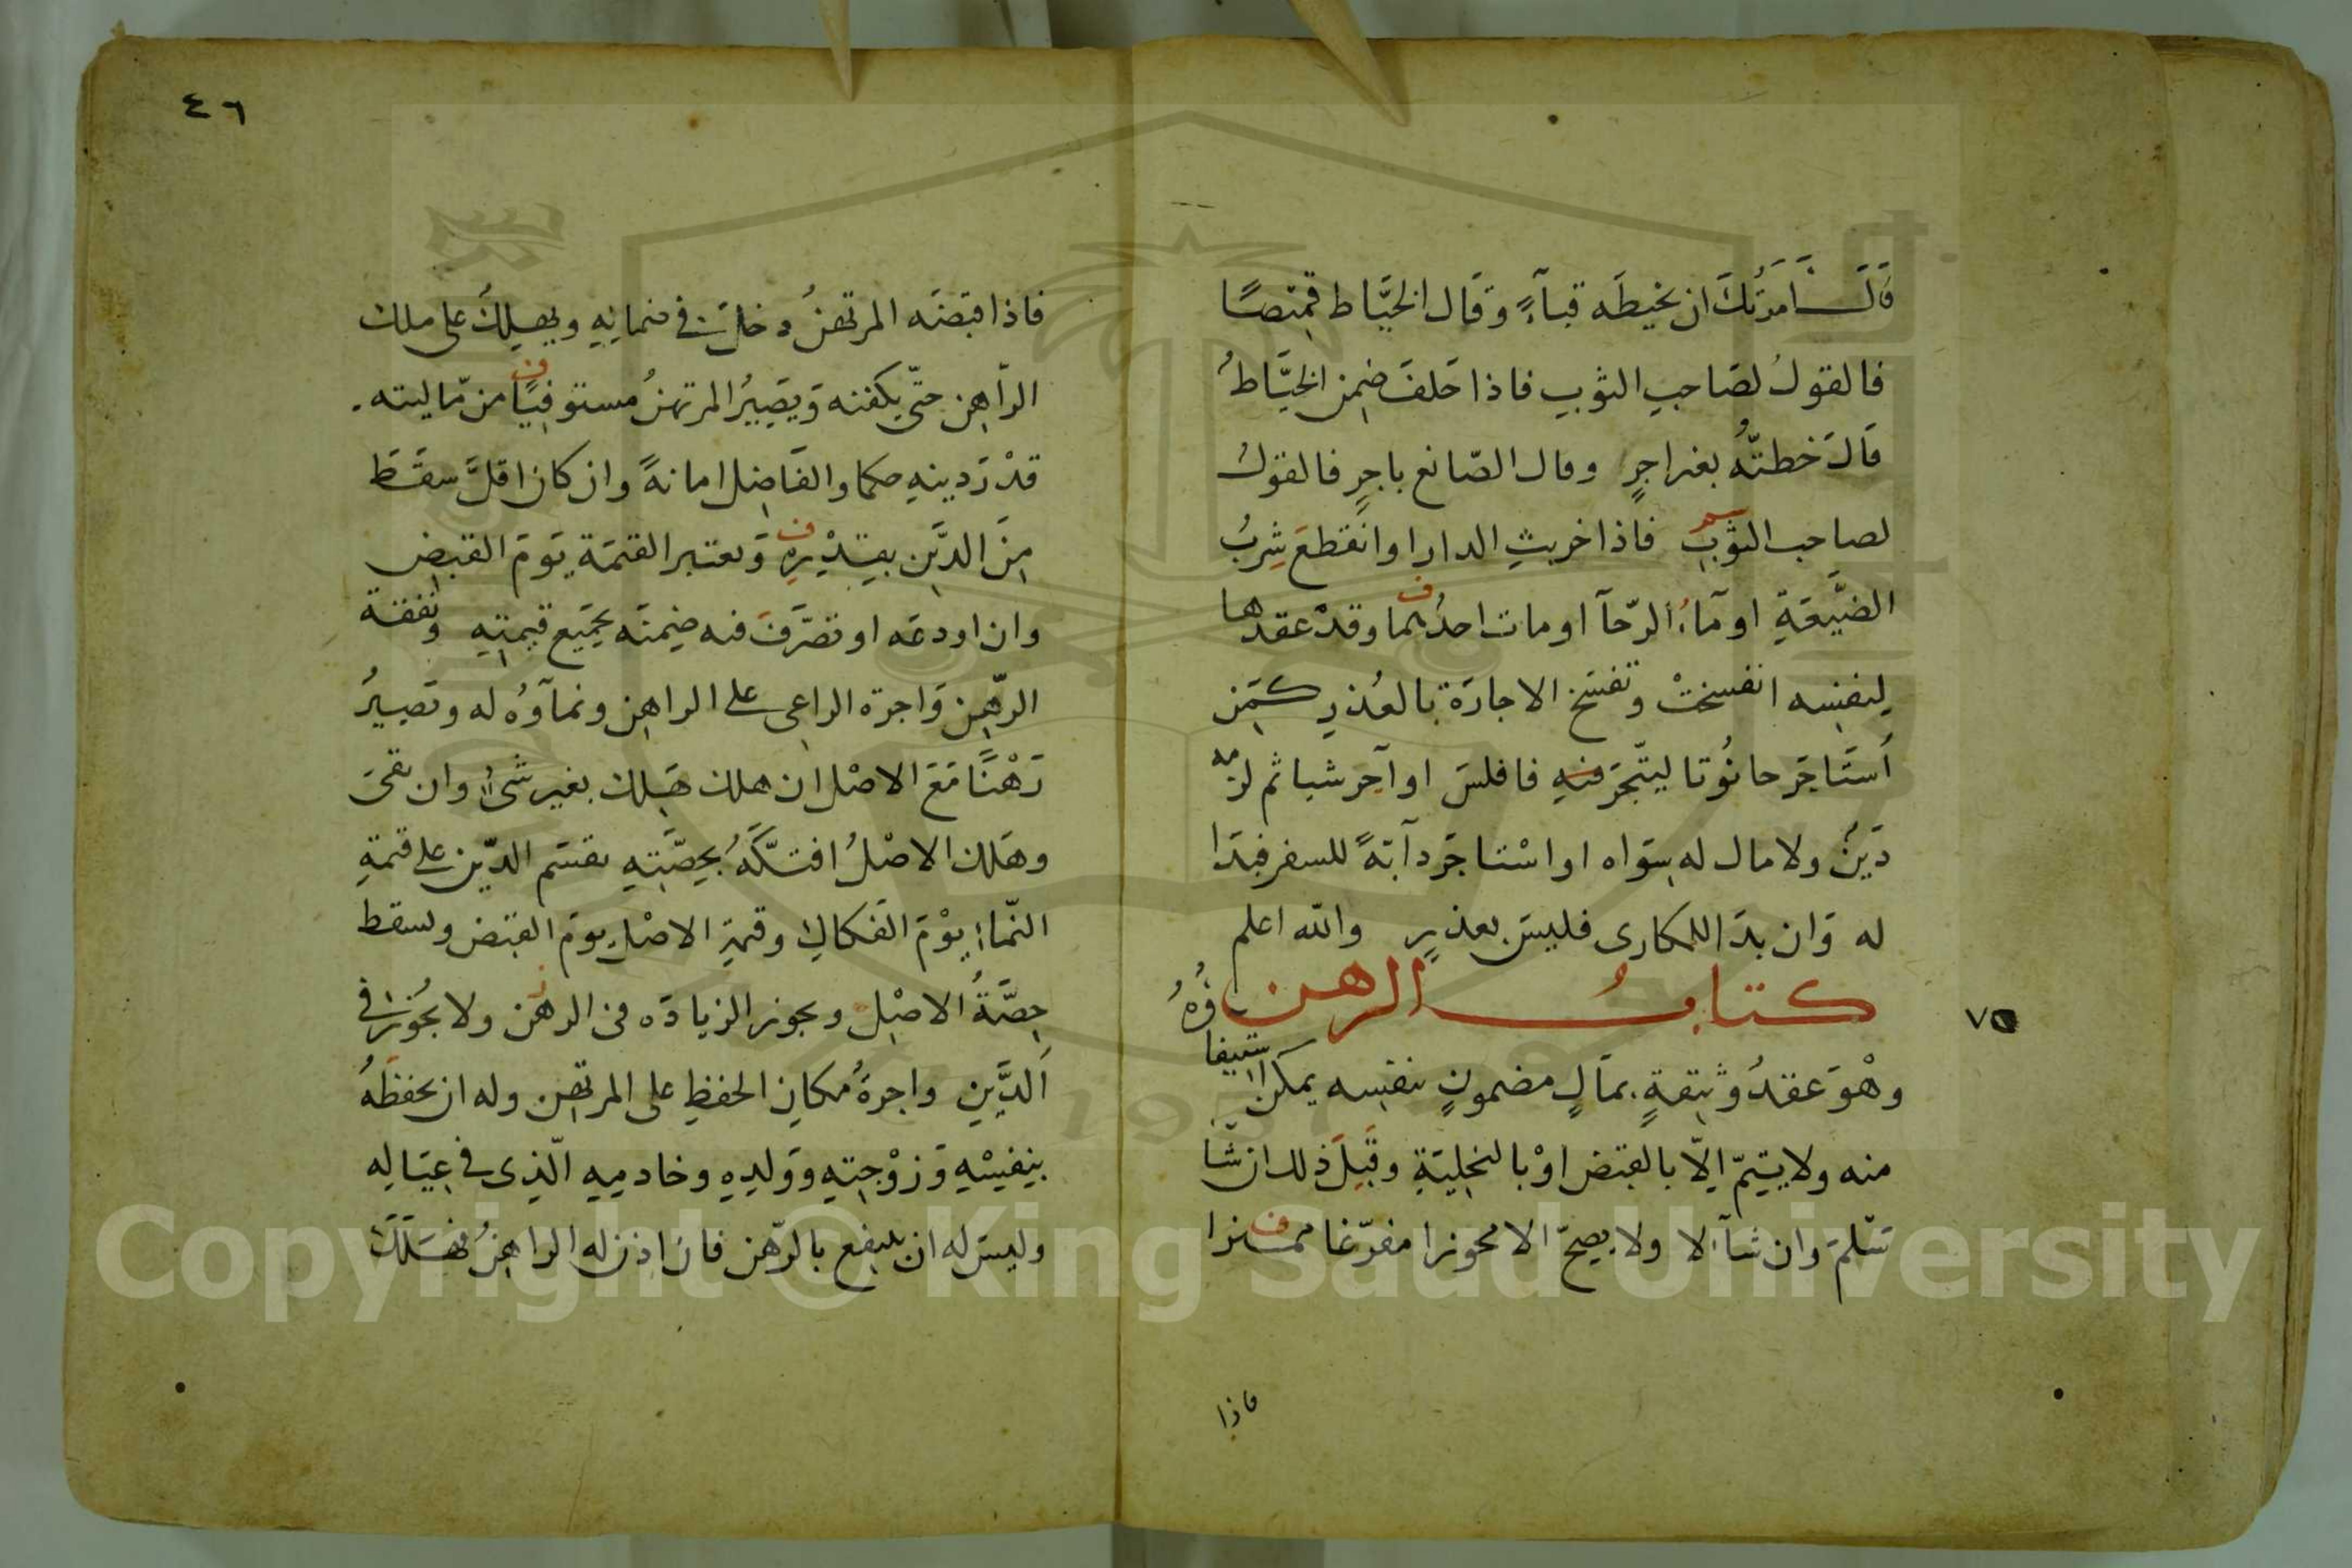 قال امرتك ان يخيطه قبآءً وقال الخيَّاط قميصًا
فالقولُ لصَاحبِ الثوبِ فاذا حَلفَ ضمِن الخيَّاطُ
قَالَ خطتَّهُ بغير اجرٍ وقال الصّانع باجرٍ فالقولُ
لصاحِبِ الثوبِ فاذا خربتِ الدار او انقطعَ شِربُ
الضيَّعَةِ او مآءُ الرّحآ او مات احدُهما وقدْ عقدها
لِنفسِه انفسختْ وتفسَخ الاجارَة بالعُذرِ كمَن
اَستَاجَر حانُوتا ليتّجرَ فيهِ فافلسَ او آجر شيا ثم لزمه
دَينُ ولا مال له سِوَاه او اسْتاجَر دآبَّةً للسفر فبَدَا
له وَان بدَا للمكارى فليسَ بعذرٍ والله اعلم
كتابُ الرهن
٧٥
وهْوَ عقدُ وثيقةٍ بمَالٍ مضمونٍ بنفسِه يمكن استيفاؤُهُ
منه ولا يتِمّ اِلّا بالقبَض اوْ بالتخلِيَةِ وقَبلَ ذلك ان شَّا
سَلّمَ وان شآ لا ولا يصحّ الا محوزا مفرّغا مميزا
فاذا
٤٦
فاذا قبَضَه المرتهنُ دخلَ في ضمانِهِ ويهلِكُ على ملك
الرّاهِن حتّى يكفنه وَيصَيرُ المرتهنُ مستوفيًا من مّاليته
قدْرَ دينهِ حكما والفَاضِل امانةً وان كان اقلَّ سقَطَ
مِنَ الدَّين بِقدْرِهِ وَتعتبر القيمَة يَومَ القبض
وان اودعَه او تصَّرَفَ فيه ضِمنَه بجَميَع قيمتِهِ ونفقة
الرّهِن وَاجرة الراعِى على الراهِن ونمآؤُه له وتَصيرُ
رَهْنًا مَعَ الاصْل ان هلك هَلك بغير شَىءٍ وان بقىَ
وهَلك الاصْلُ افتكّهُ بِحصَّتِهِ يقسَم الدّين على قيمةِ
النّماءِ يوْمَ الفَكاكِ وقيمةِ الاصْلِ يومَ القبَض ويسقط
حِصَّةُ الاصْلِ ويجوز الزيادَه فى الرهْن ولا يجُوزُ في
اَلدَّيِن واجرةُ مكانِ الحفظِ على المرتهن وله ان يحفظَهُ
بِنفسْهِ وَزوْجتِهِ ووَلدِهِ وخادمِهِ الّذِى في عِيَالِه
وليسَ له ان ينتفع بالرّهن فان اذن له الراهِنُ فهَلَكَ
Copyright © King Saud University
1957